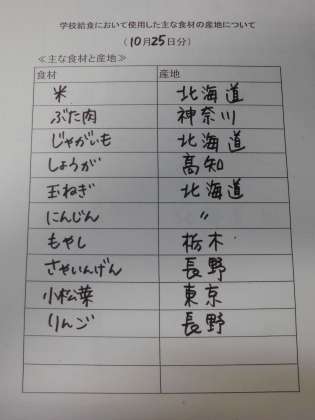 学校給食において使用した主な食材の産地について
（10月25日分）
≪主な食材と産地≫
食材 産地
米 北海道
ぶた肉 神奈川
じゃがいも 北海道
しょうが 高知
玉ねぎ 北海道
にんじん 〃
もやし 栃木
さやいんげん 長野
小松菜 東京
りんご 長野